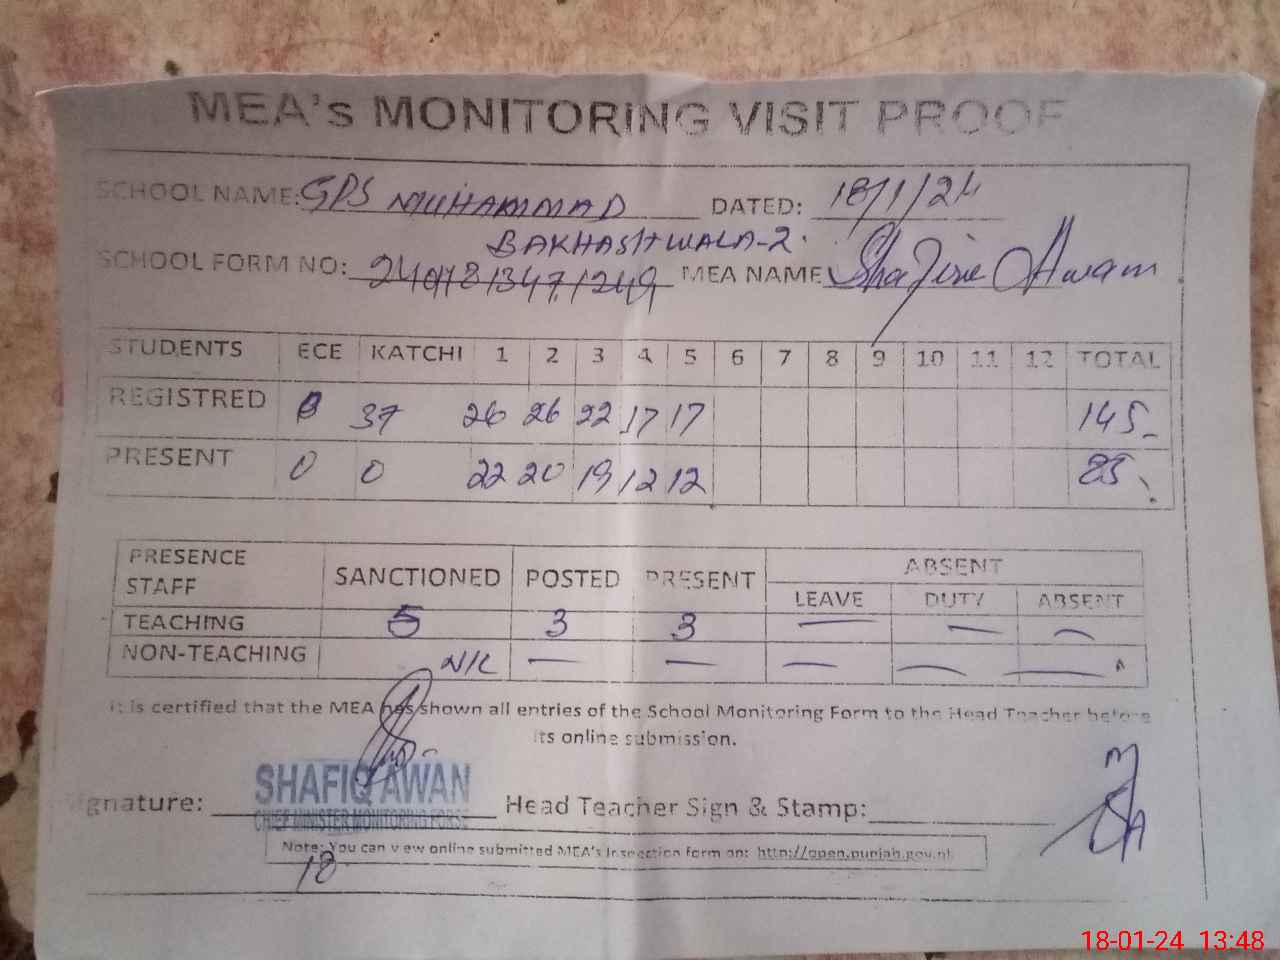 MEA's MONITORING VISIT PROOF
SCHOOL NAME: GPS MUHAMMAD DATED: 18/1/24
BAKHASHWALA-2
SCHOOL FORM NO: MEA NAME Awan
STUDENTS ECE KATCHI 1 2 3 4 5 6 7 8 9 10 11 12 TOTAL
REGISTRED 37 26 26 22 17 17 145
PRESENT 0 0 22 20 19 12 12 85
PRESENCE STAFF SANCTIONED POSTED PRESENT ABSENT
LEAVE DUTY ABSENT
TEACHING 5 3 3 — — —
NON-TEACHING — — — — —
It is certified that the MEA has shown all entries of the School Monitoring Form to the Head Teacher before
its online submission.
SHAFIQ AWAN
CHIEF MINISTER MONITORING FORSE
ignature: Head Teacher Sign & Stamp:
Note: You can view online submitted MEA's Inspection form on: http://open.punjab.gov.pk
18
18-01-24 13:48